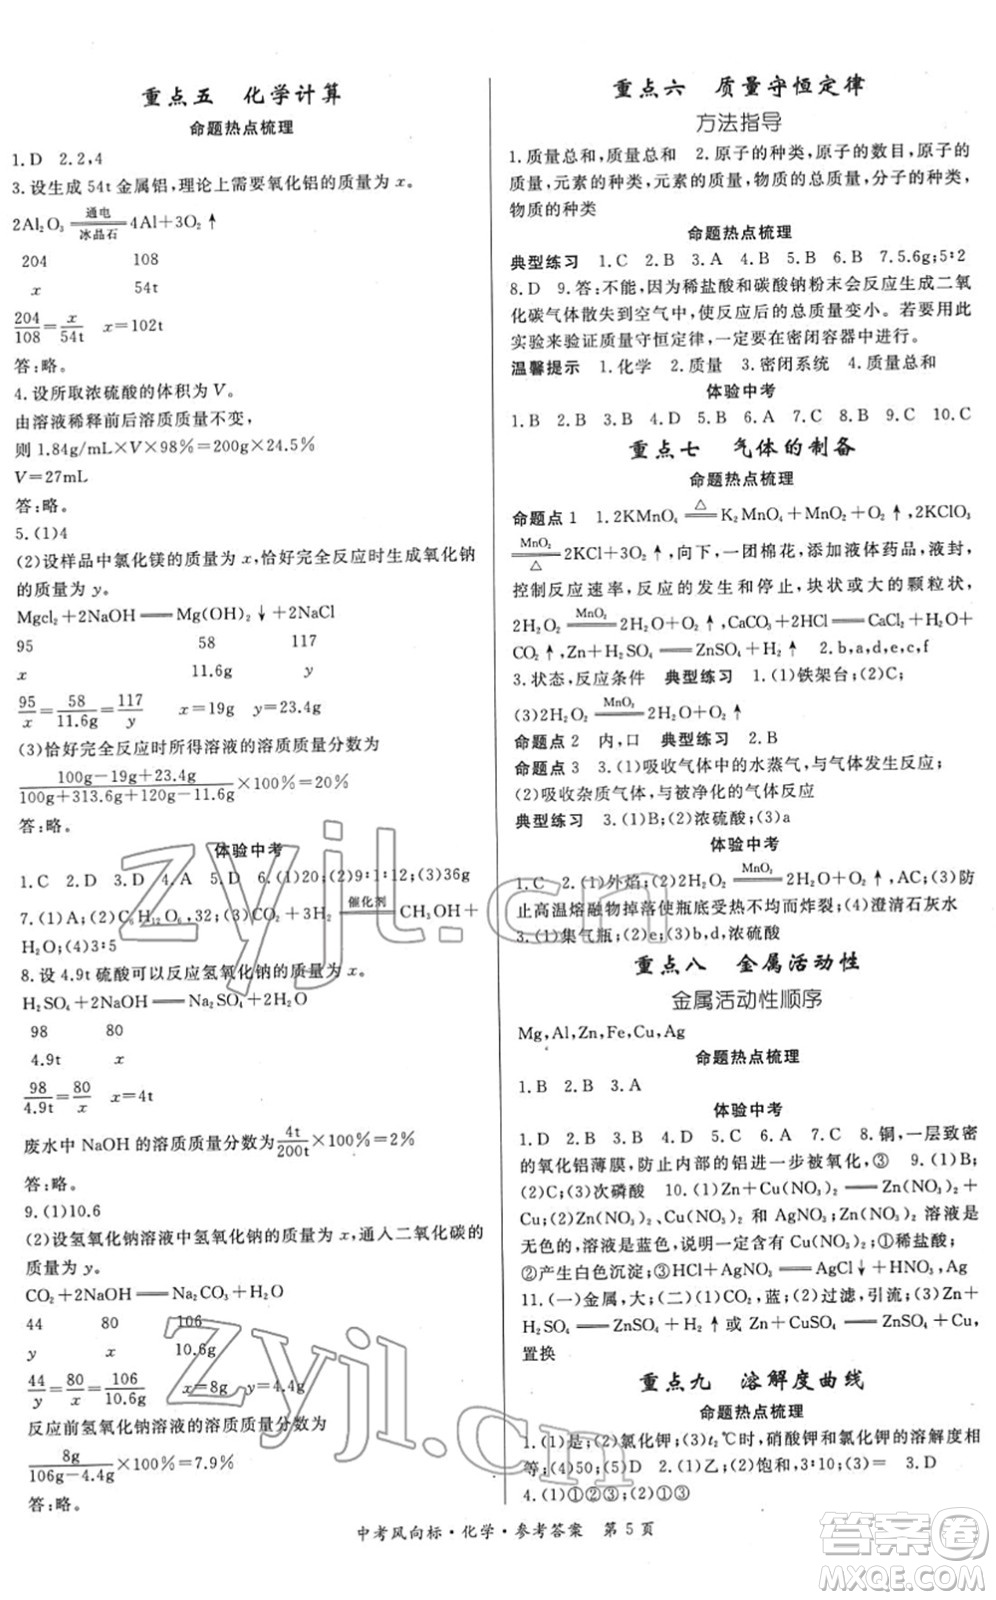 重点五 化学计算
命题热点梳理
1.D 2.2,4
3.设生成54t金属铝,理论上需要氧化铝的质量为x。
2Al₂O₃ 通电 冰晶石 4Al+3O₂↑
204 108
x 54t
204/108=x/54t x=102t
答:略。
4.设所取浓硫酸的体积为V。
由溶液稀释前后溶质质量不变,
则1.84g/mL×V×98%=200g×24.5%
V=27mL
答:略。
5.(1)4
(2)设样品中氯化镁的质量为x,恰好完全反应时生成氧化钠
的质量为y。
Mgcl₂+2NaOH══Mg(OH)₂↓+2NaCl
95 58 117
x 11.6g y
95/x=58/11.6g=117/y x=19g y=23.4g
(3)恰好完全反应时所得溶液的溶质质量分数为
(100g-19g+23.4g)/(100g+313.6g+120g-11.6g)×100%=20%
答:略。
体验中考
1.C 2.D 3.D 4.A 5.D 6.(1)20;(2)9:1:12;(3)36g
7.(1)A;(2)C₆H₁₂O₆,32;(3)CO₂+3H₂ 催化剂 CH₃OH+
H₂O;(4)3:5
8.设4.9t硫酸可以反应氢氧化钠的质量为x。
H₂SO₄+2NaOH══Na₂SO₄+2H₂O
98 80
4.9t x
98/4.9t=80/x x=4t
废水中NaOH的溶质质量分数为4t/200t×100%=2%
答:略。
9.(1)10.6
(2)设氢氧化钠溶液中氢氧化钠的质量为x,通人二氧化碳的
质量为y。
CO₂+2NaOH══Na₂CO₃+H₂O
44 80 106
y x 10.6g
44/y=80/x=106/10.6g x=8g y=4.4g
反应前氢氧化钠溶液的溶质质量分数为
8g/(106g-4.4g)×100%=7.9%
答:略。
重点六 质量守恒定律
方法指导
1.质量总和,质量总和 2.原子的种类,原子的数目,原子的
质量,元素的种类,元素的质量,物质的总质量,分子的种类,
物质的种类
命题热点梳理
典型练习 1.C 2.B 3.A 4.B 5.B 6.B 7.5.6g;5:2
8.D 9.答:不能,因为稀盐酸和碳酸钠粉末会反应生成二氧
化碳气体散失到空气中,使反应后的总质量变小。若要用此
实验来验证质量守恒定律,一定要在密闭容器中进行。
温馨提示 1.化学 2.质量 3.密闭系统 4.质量总和
体验中考
1.B 2.B 3.B 4.D 5.B 6.A 7.C 8.B 9.C 10.C
重点七 气体的制备
命题热点梳理
命题点1 1.2KMnO₄ △ K₂MnO₄+MnO₂+O₂↑,2KClO₃
MnO₂ △ 2KCl+3O₂↑,向下,一团棉花,注射器或药品,液封,
控制反应速率,反应的发生和停止,块状或大的颗粒状,
2H₂O₂ MnO₂ 2H₂O+O₂↑,CaCO₃+2HCl══CaCl₂+H₂O+
CO₂↑,Zn+H₂SO₄══ZnSO₄+H₂↑ 2.b,a,d,e,c,f
3.状态,反应条件 典型练习 1.(1)铁架台;(2)C;
(3)2H₂O₂ MnO₂ 2H₂O+O₂↑
命题点2 内,口 典型练习 2.B
命题点3 3.(1)吸收气体中的水蒸气,与气体发生反应;
(2)吸收杂质气体,与被净化的气体反应
典型练习 3.(1)B;(2)浓硫酸;(3)a
体验中考
1.C 2.(1)外焰;(2)2H₂O₂ MnO₂ 2H₂O+O₂↑,AC;(3)防
止高温熔融物掉落使瓶底受热不均而炸裂;(4)澄清石灰水
3.(1)集气瓶;(2)e;(3)b,d,浓硫酸
重点八 金属活动性
金属活动性顺序
Mg,Al,Zn,Fe,Cu,Ag
命题热点梳理
1.B 2.B 3.A
体验中考
1.D 2.B 3.A 4.D 5.C 6.A 7.C 8.铜,一层致密
的氧化铝薄膜,防止内部的铝进一步被氧化,③ 9.(1)B;
(2)C;(3)次磷酸 10.(1)Zn+Cu(NO₃)₂══Zn(NO₃)₂+
Cu;(2)蓝色,Zn(NO₃)₂和AgNO₃;Zn(NO₃)₂溶液是
无色的,溶液显蓝色,说明一定含有Cu(NO₃)₂;①稀盐酸;
②产生白色沉淀;③HCl+AgNO₃══AgCl↓+HNO₃,Ag
11.(一)金属,大;(二)(1)CO₂,蓝;(2)过滤,引流;(3)Zn+
H₂SO₄══ZnSO₄+H₂↑或Zn+CuSO₄══ZnSO₄+Cu,
置换
重点九 溶解度曲线
命题热点梳理
1.(1)是;(2)氯化钾;(3)t₂℃时,硝酸钾和氯化钾的溶解度相
等;(4)50;(5)< 2.(1)乙;(2)饱和,3:10;(3)= 3.D
4.(1)①②③;(2)①③
中考风向标·化学·参考答案 第5页
zyjl.cn
zyjl.cn
答案圈
MXQE.COM